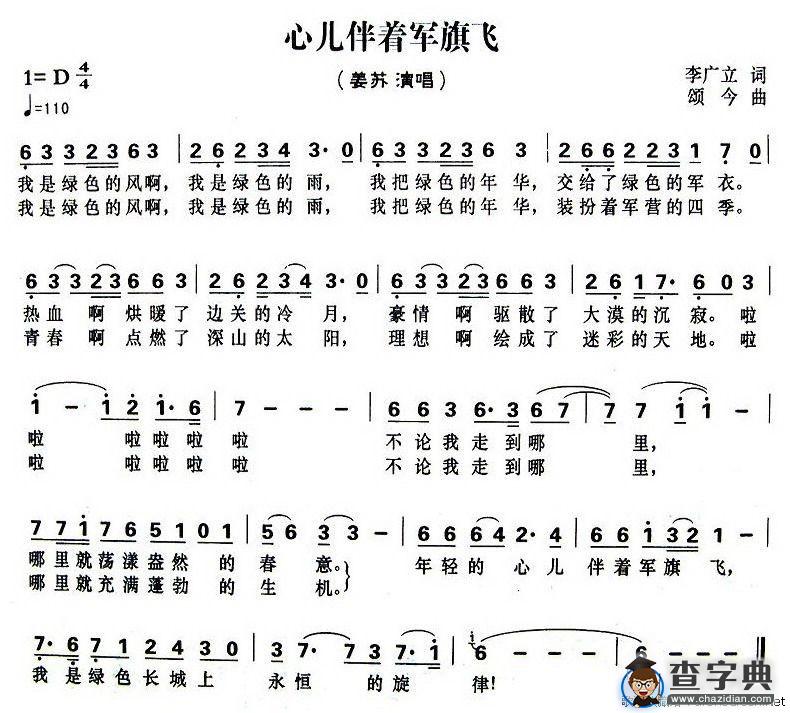 心儿伴着军旗飞
1= D 4/4
(姜苏 演唱)
李广立 词
♩=110
颂 今 曲
6 3 3 2 3 6 3 | 2 6 2 3 4 3· 0 | 6 3 3 2 3 6 3 | 2 6 6 2 2 3 1 7 0 |
我是绿色的风啊, 我是绿色的 雨, 我把绿色的年 华, 交给了绿色的军 衣。
我是绿色的风啊, 我是绿色的 雨, 我把绿色的年 华, 装扮着军营的四 季。
6 3 3 2 3 6 6 3 | 2 6 2 3 4 3· 0 | 6 3 3 2 3 6 6 3 | 2 6 1 7· 6 0 3 |
热血 啊 烘暖了 边关的冷 月, 豪情 啊 驱散了 大漠的沉 寂。啦
青春 啊 点燃了 深山的太 阳, 理想 啊 绘成了 迷彩的天 地。啦
1 - 1 2 1· 6 | 7 - - - | 6 6 3 6· 3 6 7 7 | 7 7 1 1 - |
啦 啦啦啦啦 啦 不论我走到哪 里,
啦 啦啦啦啦 啦 不论我走到哪 里,
7 7 1 7 6 5 1 0 1 | 5 6 3 3 - | 6 6 6 6 2 2· 4 | 6 6 1 3 3 - |
哪里就荡漾盎然 的 春 意。 年轻的 心儿 伴着军旗 飞,
哪里就充满蓬勃 的 生 机。
7· 6 7 1 2 4 3 0 | 3· 7 7 7· 3 | 6 - - - | 6 - - ‖
我 是绿色长城上 永恒 的旋 律!
查字典
www.chazidian.com